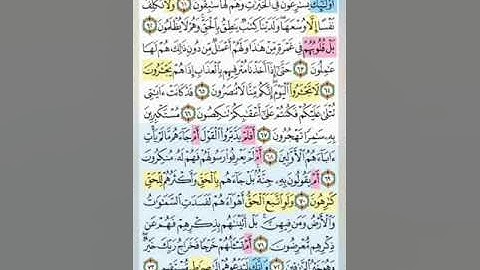 أُولَٰئِكَ يُسَارِعُونَ فِي الْخَيْرَاتِ وَهُمْ لَهَا سَابِقُونَ ٦١ وَلَا نُكَلِّفُ
نَفْسًا إِلَّا وُسْعَهَا وَلَدَيْنَا كِتَابٌ يَنطِقُ بِالْحَقِّ وَهُمْ لَا يُظْلَمُونَ ٦٢
بَلْ قُلُوبُهُمْ فِي غَمْرَةٍ مِّنْ هَٰذَا وَلَهُمْ أَعْمَالٌ مِّن دُونِ ذَٰلِكَ هُمْ لَهَا
عَامِلُونَ ٦٣ حَتَّىٰ إِذَا أَخَذْنَا مُتْرَفِيهِم بِالْعَذَابِ إِذَا هُمْ يَجْأَرُونَ
٦٤ لَا تَجْأَرُوا الْيَوْمَ إِنَّكُم مِّنَّا لَا تُنصَرُونَ ٦٥ قَدْ كَانَتْ آيَاتِي
تُتْلَىٰ عَلَيْكُمْ فَكُنتُمْ عَلَىٰ أَعْقَابِكُمْ تَنكِصُونَ ٦٦ مُسْتَكْبِرِينَ
بِهِ سَامِرًا تَهْجُرُونَ ٦٧ أَفَلَمْ يَدَّبَّرُوا الْقَوْلَ أَمْ جَاءَهُم مَّا لَمْ يَأْتِ
آبَاءَهُمُ الْأَوَّلِينَ ٦٨ أَمْ لَمْ يَعْرِفُوا رَسُولَهُمْ فَهُمْ لَهُ مُنكِرُونَ
٦٩ أَمْ يَقُولُونَ بِهِ جِنَّةٌ بَلْ جَاءَهُم بِالْحَقِّ وَأَكْثَرُهُمْ لِلْحَقِّ
كَارِهُونَ ٧٠ وَلَوِ اتَّبَعَ الْحَقُّ أَهْوَاءَهُمْ لَفَسَدَتِ السَّمَاوَاتُ
وَالْأَرْضُ وَمَن فِيهِنَّ بَلْ أَتَيْنَاهُم بِذِكْرِهِمْ فَهُمْ عَن
ذِكْرِهِم مُّعْرِضُونَ ٧١ أَمْ تَسْأَلُهُمْ خَرْجًا فَخَرَاجُ رَبِّكَ خَيْرٌ
وَهُوَ خَيْرُ الرَّازِقِينَ ٧٢ وَإِنَّكَ لَتَدْعُوهُمْ إِلَىٰ صِرَاطٍ مُّسْتَقِيمٍ ٧٣